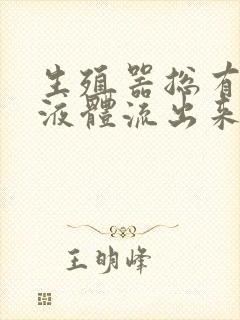 生殖器總有
液體流出來
王明峰